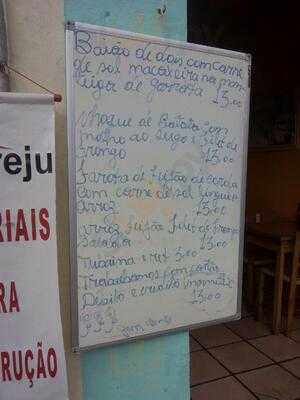 Baião de dois com carne
de sol macaxeira na man
teiga de garrafa
13,00
Nhoque de Batata com
molho ao sugo e filé de
frango 13,00
Farofa de feijão de corda
com carne de sol
arroz 13,00
arroz, feijão filé de frango
salada 13,00
Tubaína 3,00
Trabalhamos com cartão
Débito e crédito
13,00
reju
RIAIS
RA
RUÇÃO